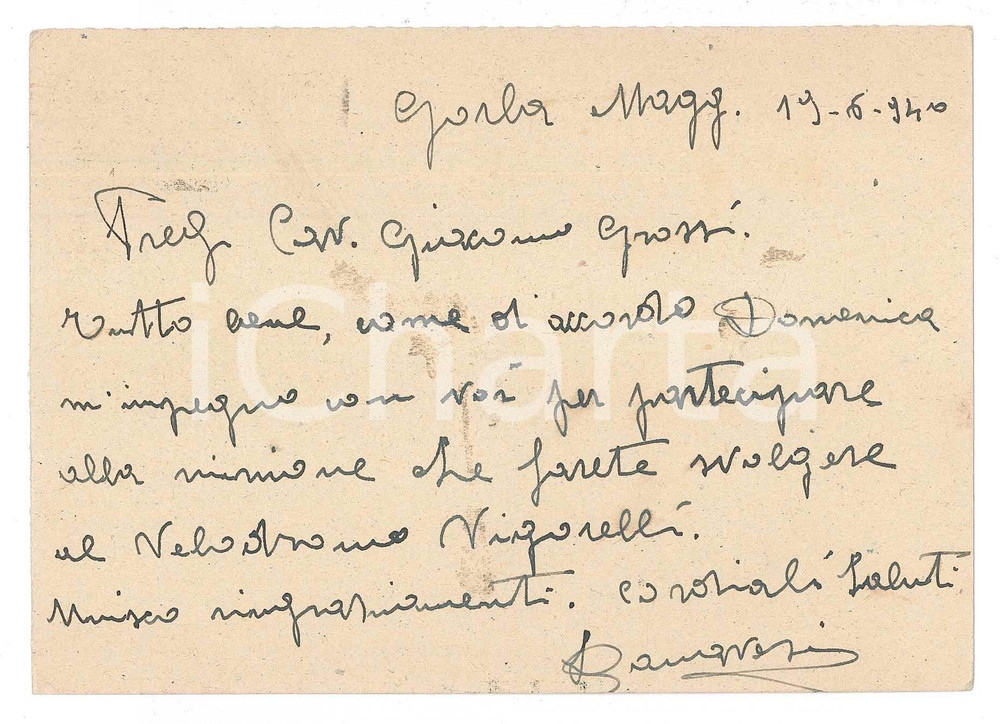 Gorla Magg. 19-6-940
Preg. Cav. Giacomo Grossi.
Tutto bene, come di accordo Domenica
m'impegno con voi per partecipare
alla riunione che farete svolgere
al Velodromo Vigorelli.
Unisco ringraziamenti. Cordiali Saluti
iCharta